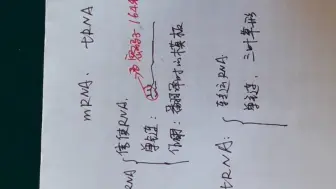 mRNA. tRNA
信使RNA.
单链：
作用：翻译时的模板
RNA
tRNA:
转运RNA.
单链, 三叶草形